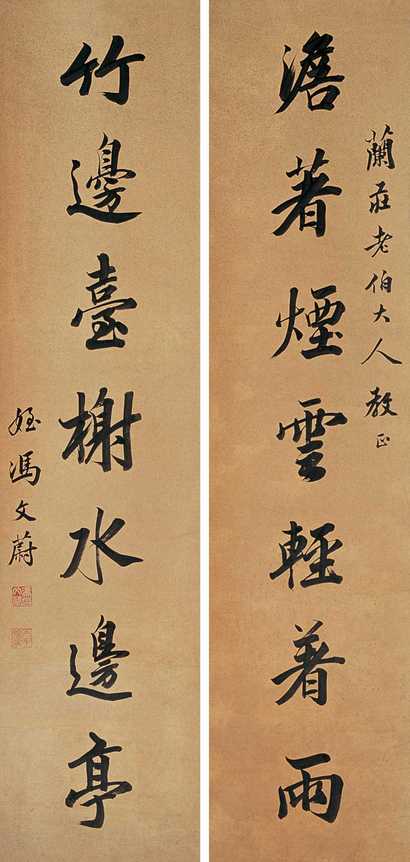 蘭莊老伯大人教正
澹著煙雲輕著雨
竹邊臺榭水邊亭
姪馮文蔚